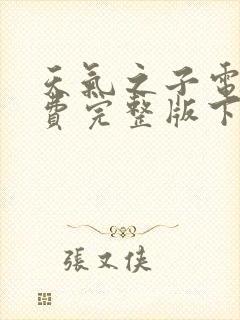 天氣之子電
費完整版下
張又俠